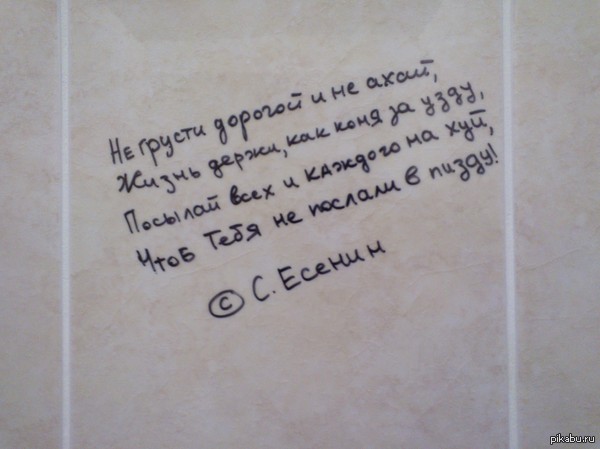 Не грусти дорогой и не ахай,
Жизнь держи, как коня за узду,
Посылай всех и каждого на хуй,
Чтоб Тебя не послали в пизду!
© С. Есенин
pikabu.ru